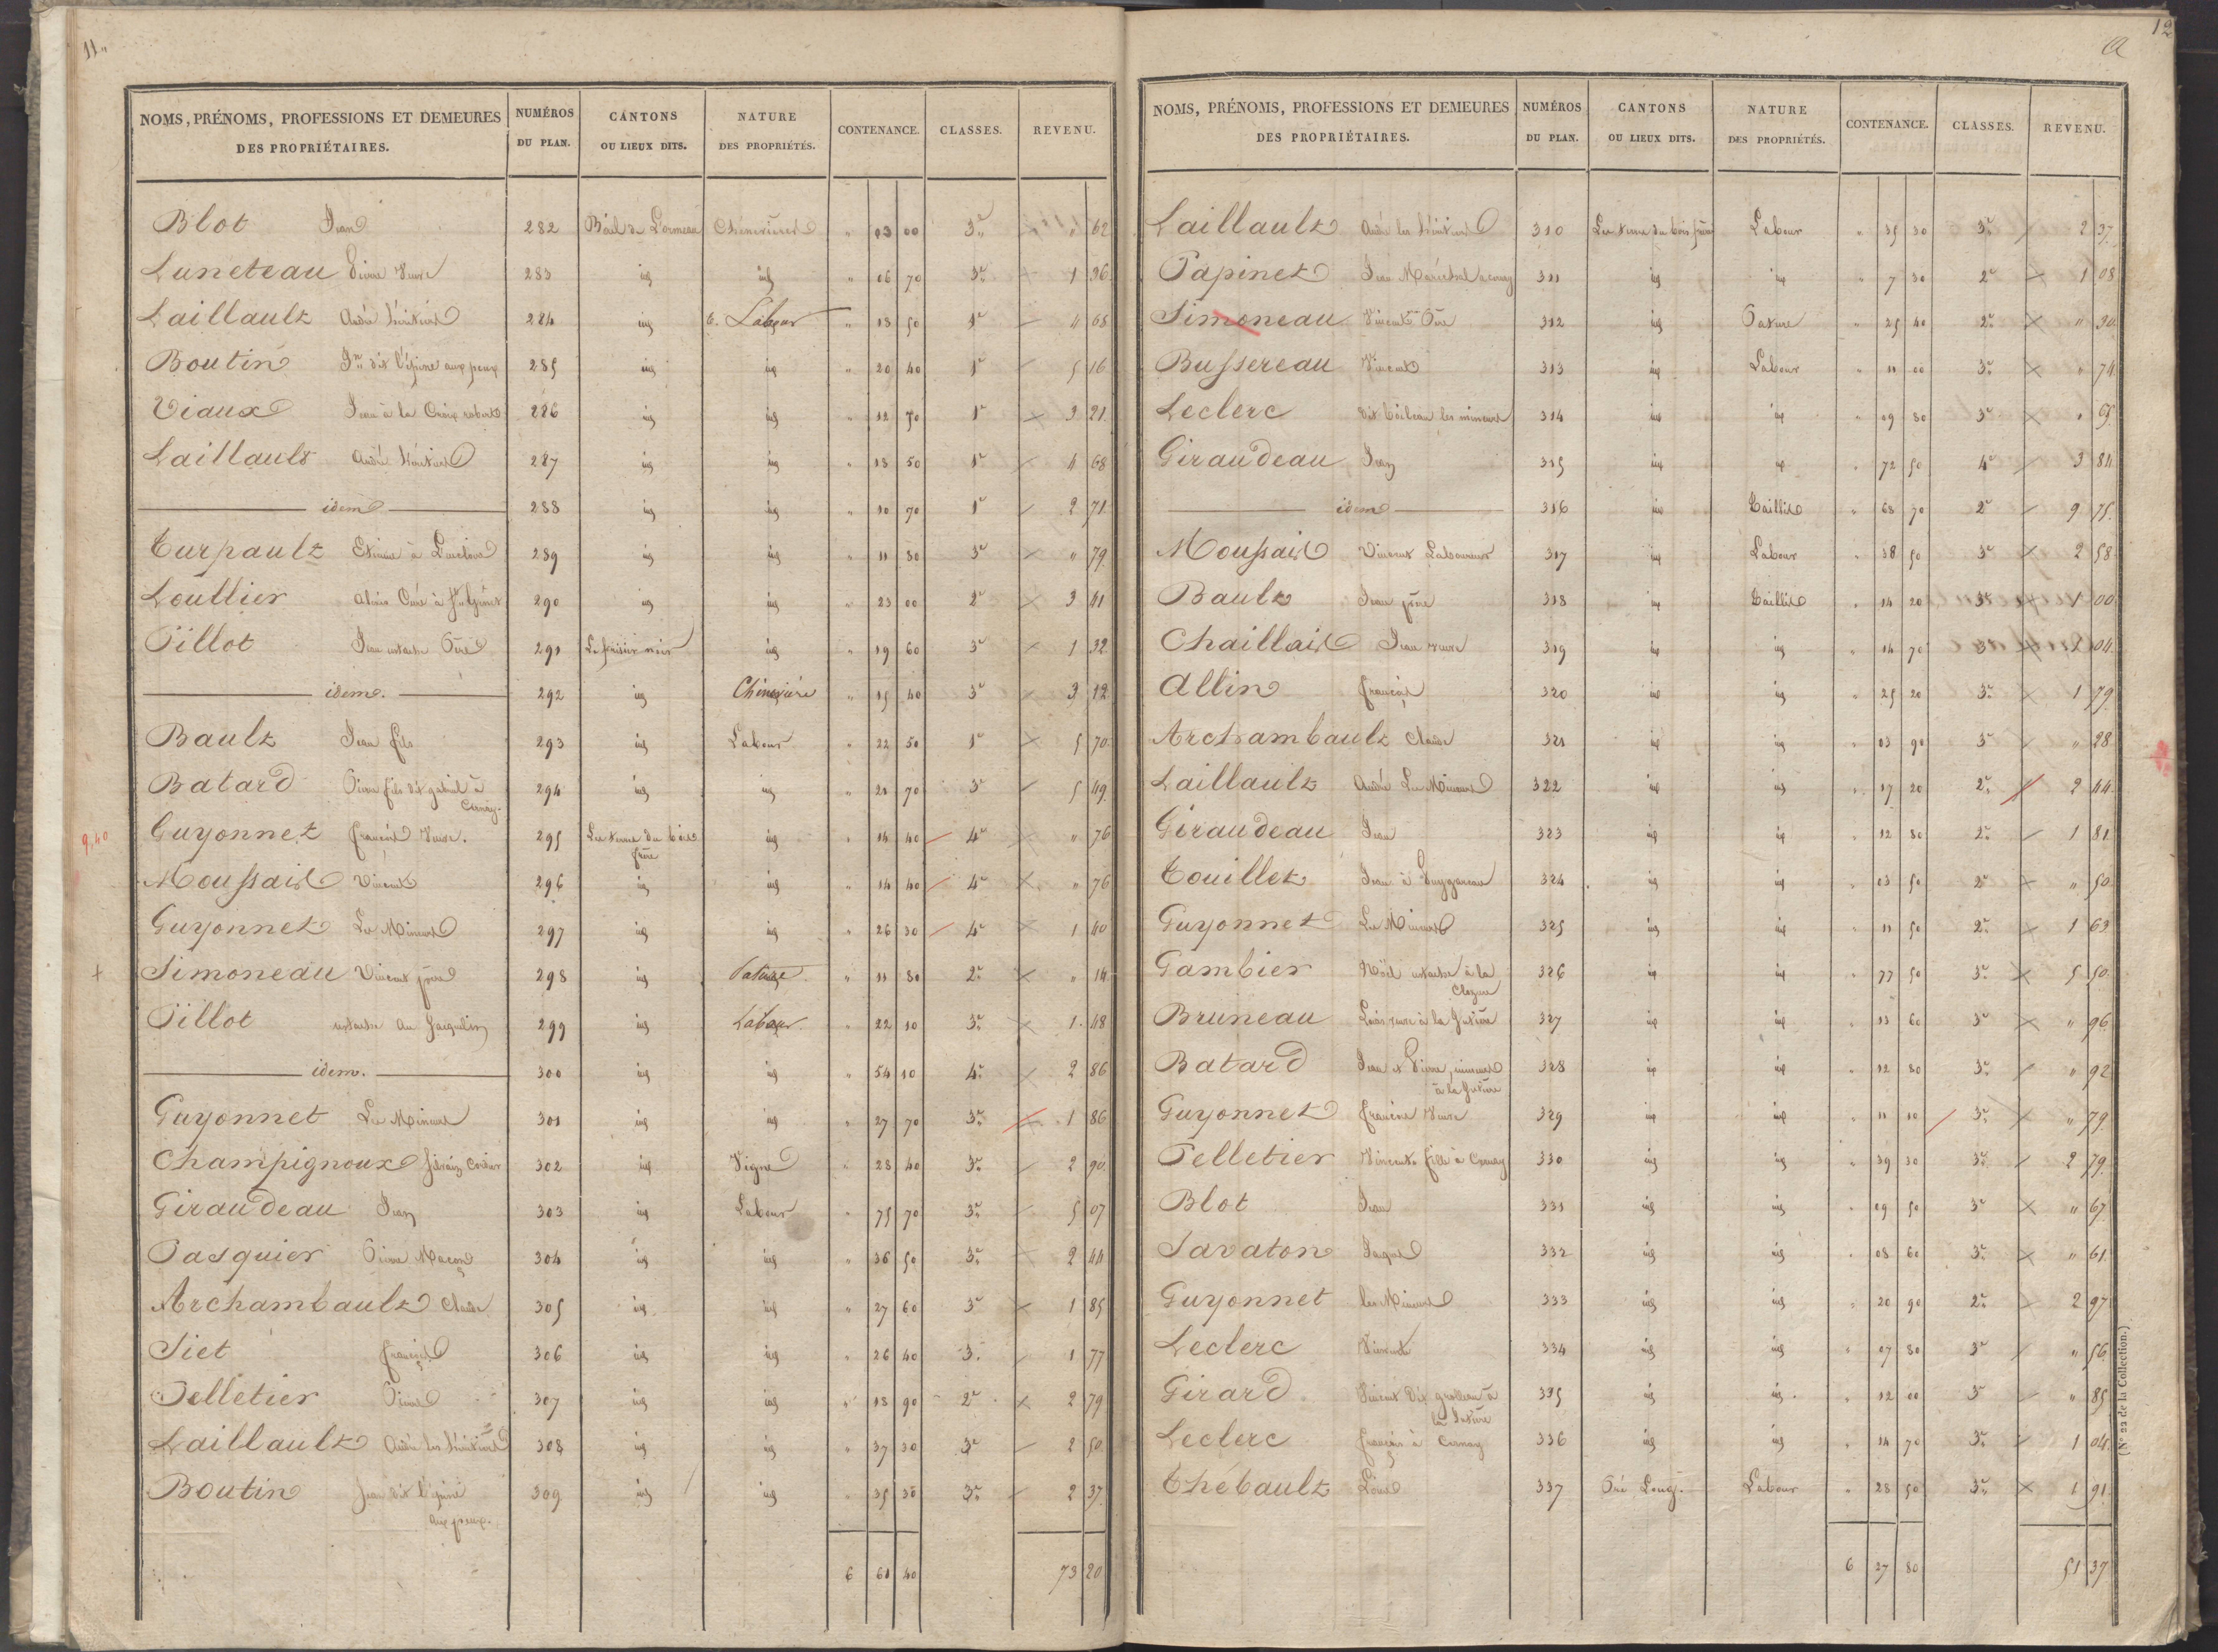 11"
NOMS, PRÉNOMS, PROFESSIONS ET DEMEURES DES PROPRIÉTAIRES. NUMÉROS DU PLAN. CANTONS OU LIEUX DITS. NATURE DES PROPRIÉTÉS. CONTENANCE. CLASSES. REVENU.
Blot Jean 282 de L'ormeau " 03 00 3e " 62
Luneteau Pierre Veuve 283 id id " 06 70 3e 1 36
Laillault André héritiers 284 id Labour " 18 50 1e 4 68
Boutin Jn dit l'épine aux peux 285 id id " 20 40 1e 5 16
Viaux Jean à la Croix 286 id id " 12 70 1e 3 21
Laillault André héritiers 287 id id " 18 50 1e 4 68
idem 288 id id " 10 70 1e 2 71
Turpault Etienne à 289 id id " 11 80 3e " 79
Loullier Curé à 290 id id " 23 00 2e 3 41
Pillot Jean Père 291 id " 19 60 3e 1 32
idem. 292 id Chénevière " 15 40 3e 3 12
Bault Jean fils 293 id Labour " 22 50 1e 5 70
Batard Pierre fils dit gabriel à Cernay. 294 id id " 21 70 3e 5 49
9,40 Guyonnet François Veuve. 295 du bois frère id " 14 40 4e " 76
Moussais Vincent 296 id id " 14 40 4e " 76
Guyonnet Les Mineurs 297 id id " 26 30 4e 1 40
+ Simoneau Vincent père 298 id Pature " 11 80 2e " 14
Pillot au Jacquelin 299 id Labour " 22 10 3e 1. 48
idem. 300 id id " 54 10 4e 2 86
Guyonnet Les Mineurs 301 id id " 27 70 3e 1 86
Champignoux 302 id Vigne " 28 40 3e 2 90
Giraudeau Jean 303 id Labour " 75 70 3e 5 07
Pasquier Pierre Maçon 304 id id " 36 50 3e 2 44
Archambault Claude 305 id id " 27 60 3e 1 85
Siet François 306 id id " 26 40 3. 1 77
Pelletier Pierre 307 id id " 18 90 2e 2 79
Laillault André les héritiers 308 id id " 37 30 3e 2 50
Boutin Jean dit l'épine aux peux. 309 id id " 35 30 3e 2 37
6 61 40 73 20
12
a
NOMS, PRÉNOMS, PROFESSIONS ET DEMEURES DES PROPRIÉTAIRES. NUMÉROS DU PLAN. CANTONS OU LIEUX DITS. NATURE DES PROPRIÉTÉS. CONTENANCE. CLASSES. REVENU.
Laillault André les héritiers 310 du bois frère Labour " 35 30 3e 2 37
Papinet Jean Maréchal à cernay 311 id id " 7 30 2e 1 08
Simoneau Vincent Père 312 id Pature " 25 40 2e " 30
Bussereau Vincent 313 id Labour " 11 00 3e " 74
Leclerc dit les mineurs 314 id id " 09 80 3e " 65
Giraudeau Jean 315 id id " 72 50 4e 3 84
idem 316 id Taillis " 68 70 2e 9 75
Moussais Vincent Laboureur 317 id Labour " 38 50 3e 2 58
Bault Jean père 318 id Taillis " 14 20 3e 1 00
Chaillais Jean veuve 319 id id " 14 70 3e 1 04
Allin François 320 id id " 25 20 3e 1 79
Archambault Claude 321 id id " 03 90 3e " 28
Laillault André Les Mineurs 322 id id " 17 20 2e 2 44
Giraudeau Jean 323 id id " 12 80 2e 1 81
Touillet Jean à Puygarreau 324 id id " 03 50 2e " 50
Guyonnet Les Mineurs 325 id id " 11 50 2e 1 63
Gambier Noël à la 326 id id " 77 50 3e 5 50
Bruneau Louis veuve à la 327 id id " 13 60 3e " 96
Batard Jean et Pierre, mineurs à la 328 id id " 12 80 3e " 92
Guyonnet François Veuve 329 id id " 11 10 3e " 79
Pelletier Vincent fille à Cernay 330 id id " 39 30 3e 2 79
Blot Jean 331 id id " 09 50 3e " 67
Savaton Jaques 332 id id " 08 60 3e " 61
Guyonnet les Mineurs 333 id id " 20 90 2e 2 97
Leclerc Vincent 334 id id " 07 80 3e " 56
Girard Vincent dit à la 335 id id " 12 00 3e " 85
Leclerc François à Cernay 336 id id " 14 70 3e 1 04
Thébault Louis 337 Pré Long. Labour " 28 50 3e 1 91
6 27 80 51 37
(N° 22 de la Collection.)